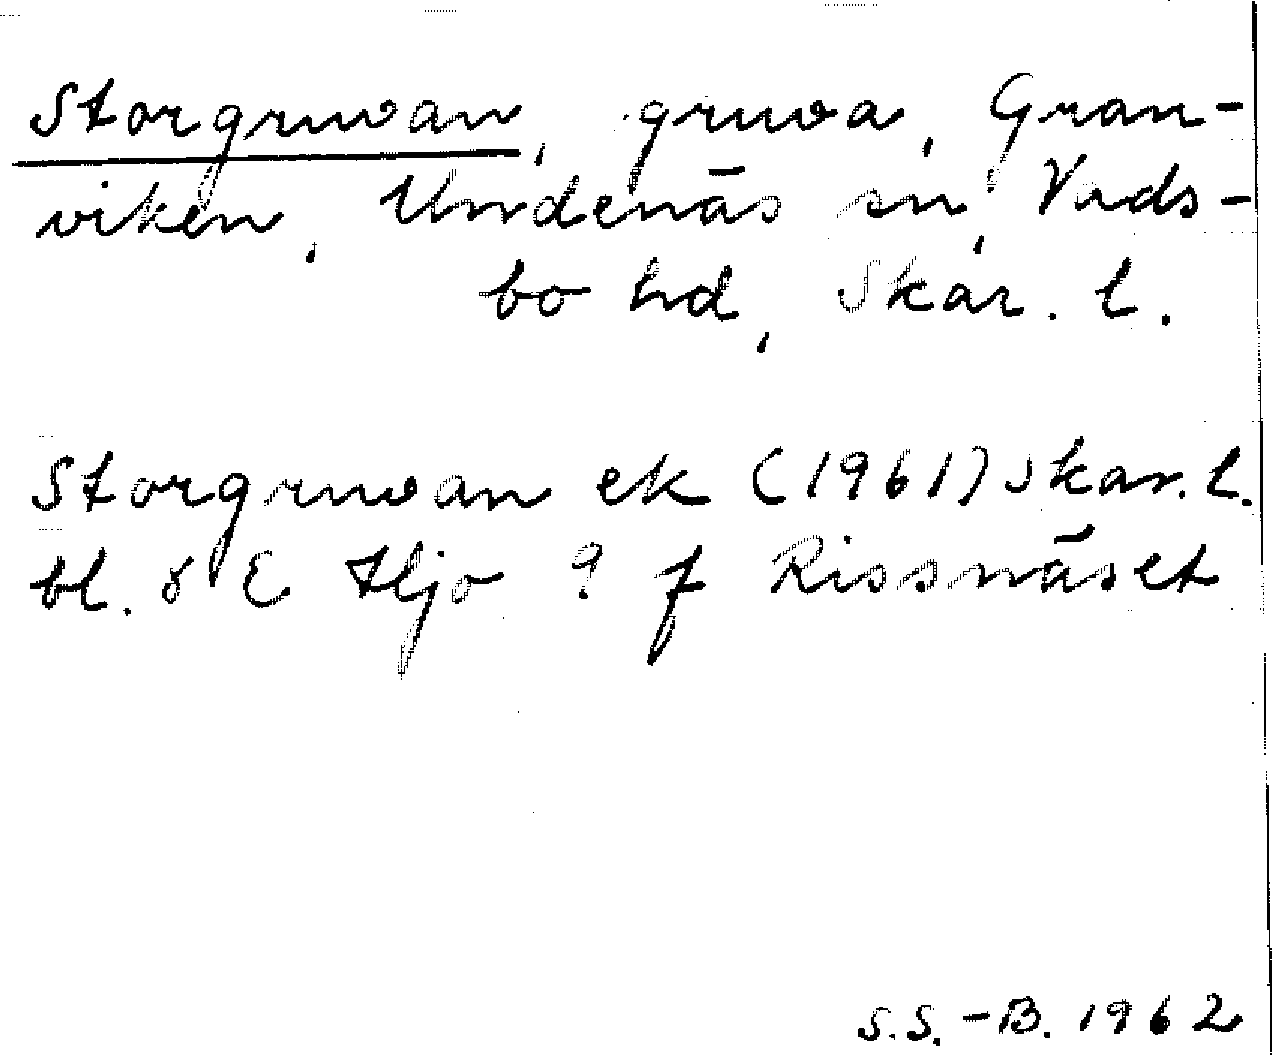 Storgruvan, gruva, Gran-
viken, Undenäs sn, Vads-
bo hd, Skar. l.
Storgruvan ek (1961) Skar. l.
bl. 8 E Hjo 9 f Rissnäset
S.S.-B. 1962